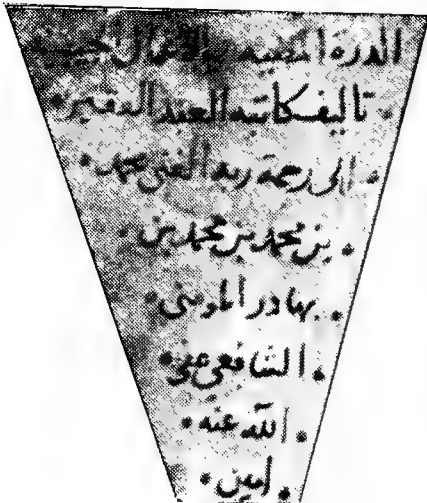 الدرة المضيه في الاعمال الجيبيه
تاليف كاتبه العبد الفقير
الى رحمة ربه الغنى محمد
بن محمد بن محمد بن
بهادر المومنى
الشافعى عفى
الله عنه
امين